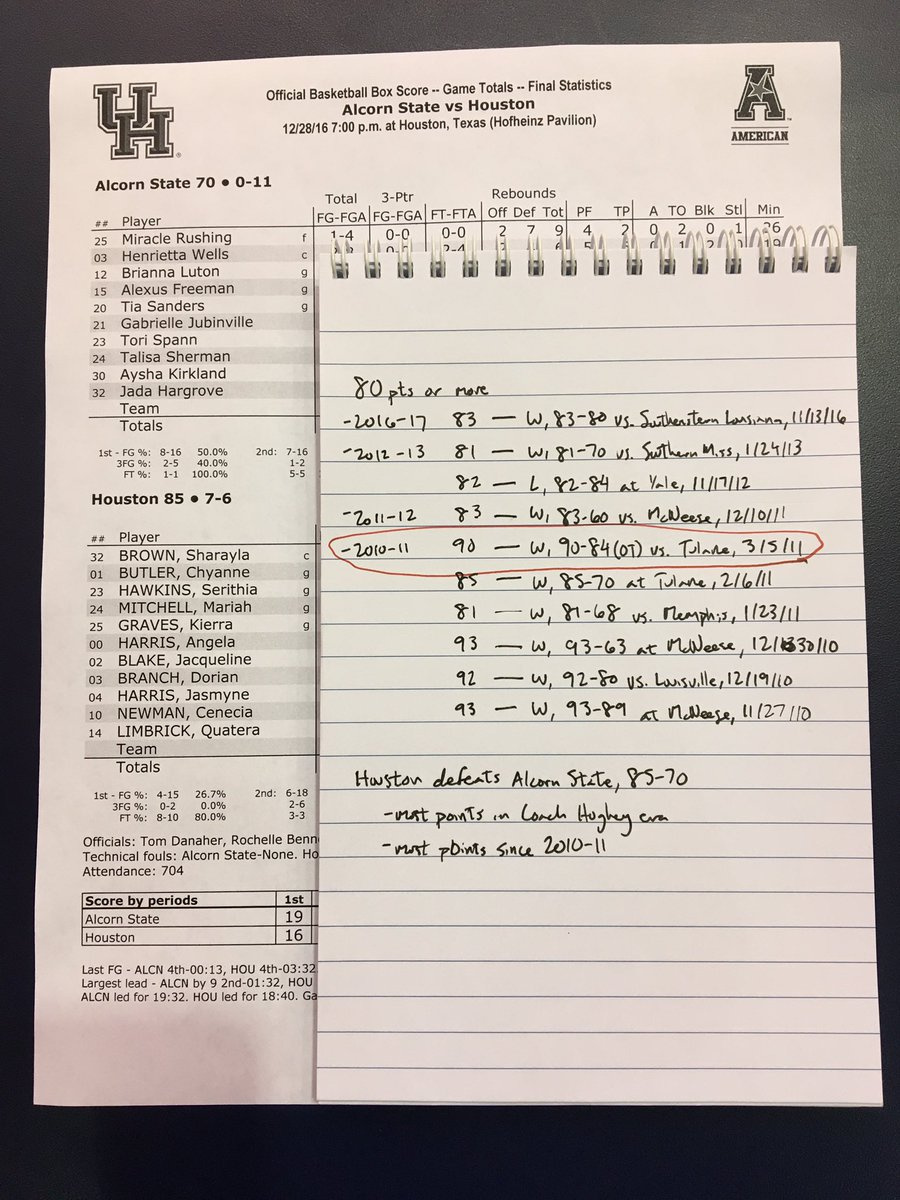 UH
Official Basketball Box Score -- Game Totals -- Final Statistics
Alcorn State vs Houston
12/28/16 7:00 p.m. at Houston, Texas (Hofheinz Pavilion)
A
AMERICAN
Alcorn State 70 • 0-11
Total 3-Ptr Rebounds
## Player FG-FGA FG-FGA FT-FTA Off Def Tot PF TP A TO Blk Stl Min
25 Miracle Rushing f 1-4 0-0 0-0 2 7 9 4 2 0 2 0 1 26
03 Henrietta Wells c
12 Brianna Luton g
15 Alexus Freeman g
20 Tia Sanders g
21 Gabrielle Jubinville
23 Tori Spann
24 Talisa Sherman
30 Aysha Kirkland
32 Jada Hargrove
Team
Totals
1st - FG %: 8-16 50.0% 2nd: 7-16
3FG %: 2-5 40.0% 1-2
FT %: 1-1 100.0% 5-5
Houston 85 • 7-6
## Player
32 BROWN, Sharayla c
01 BUTLER, Chyanne g
23 HAWKINS, Serithia g
24 MITCHELL, Mariah g
25 GRAVES, Kierra g
00 HARRIS, Angela
02 BLAKE, Jacqueline
03 BRANCH, Dorian
04 HARRIS, Jasmyne
10 NEWMAN, Cenecia
14 LIMBRICK, Quatera
Team
Totals
1st - FG %: 4-15 26.7% 2nd: 6-18
3FG %: 0-2 0.0% 2-6
FT %: 8-10 80.0% 3-3
Officials: Tom Danaher, Rochelle Benn
Technical fouls: Alcorn State-None. Ho
Attendance: 704
Score by periods 1st
Alcorn State 19
Houston 16
Last FG - ALCN 4th-00:13, HOU 4th-03:32
Largest lead - ALCN by 9 2nd-01:32, HOU
ALCN led for 19:32. HOU led for 18:40. Ga
80 pts or more
-2016-17 83 — W, 83-80 vs. Southeastern Louisiana, 11/13/16
-2012-13 81 — W, 81-70 vs. Southern Miss, 1/24/13
82 — L, 82-84 at Yale, 11/17/12
-2011-12 83 — W, 83-60 vs. McNeese, 12/10/11
-2010-11 90 — W, 90-84(OT) vs. Tulane, 3/5/11
85 — W, 85-70 at Tulane, 2/6/11
81 — W, 81-68 vs. Memphis, 1/23/11
93 — W, 93-63 at McNeese, 12/30/10
92 — W, 92-80 vs. Louisville, 12/19/10
93 — W, 93-89 at McNeese, 11/27/10
Houston defeats Alcorn State, 85-70
-most points in Coach Hughey era
-most points since 2010-11